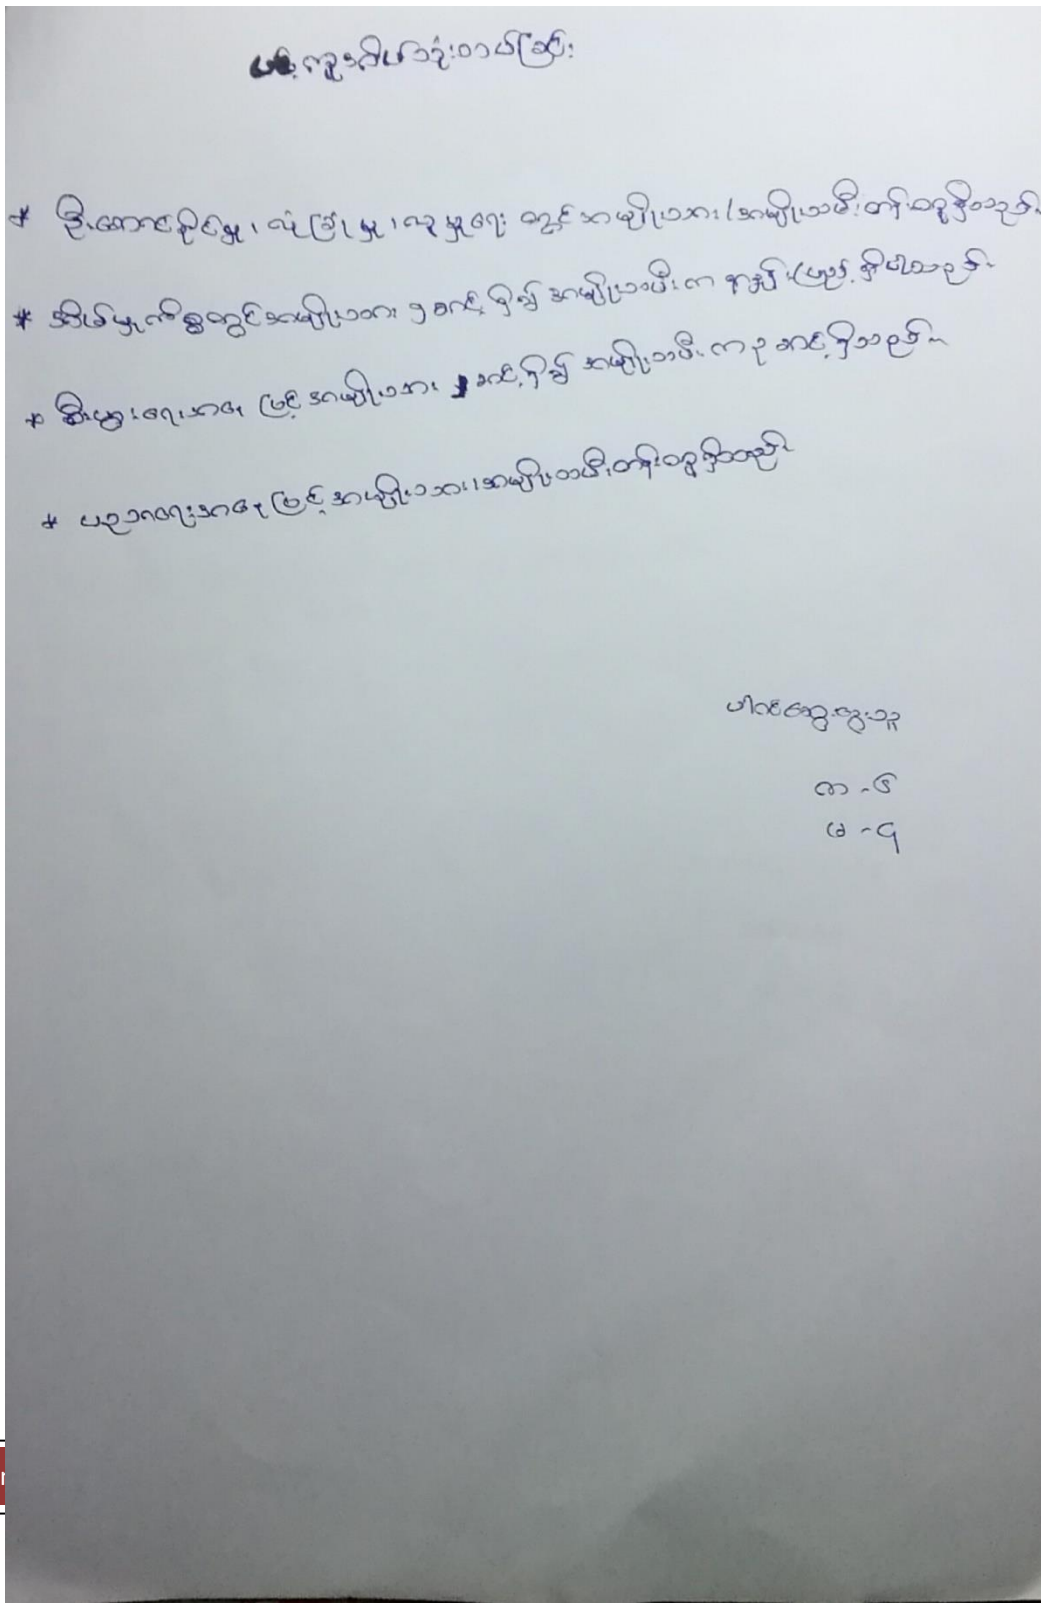 ပန်းကူအိပ်သုံးတယ်ခြင်း
* ဦးဆောင်နိုင်မှု၊ လုံခြုံမှု၊ လူမှုရေး တွင် အမျိုးသား/အမျိုးသမီး တန်းတူရှိသည်။
* အိမ်မှုကိစ္စတွင် အမျိုးသား ၅ ဆင့်ရှိ၍ အမျိုးသမီးက ပြည့်ရှိပါသည်။
* စီးပွားရေးအနေဖြင့် အမျိုးသား ဆင့်ရှိ၍ အမျိုးသမီးက ၃ ဆင့်ရှိသည်။
* ပညာရေးအနေဖြင့် အမျိုးသား၊ အမျိုးသမီး တန်းတူရှိသည်။
ပါဝင်ဆွေးနွေးသူ
ကာ - ၆
မ - ၄